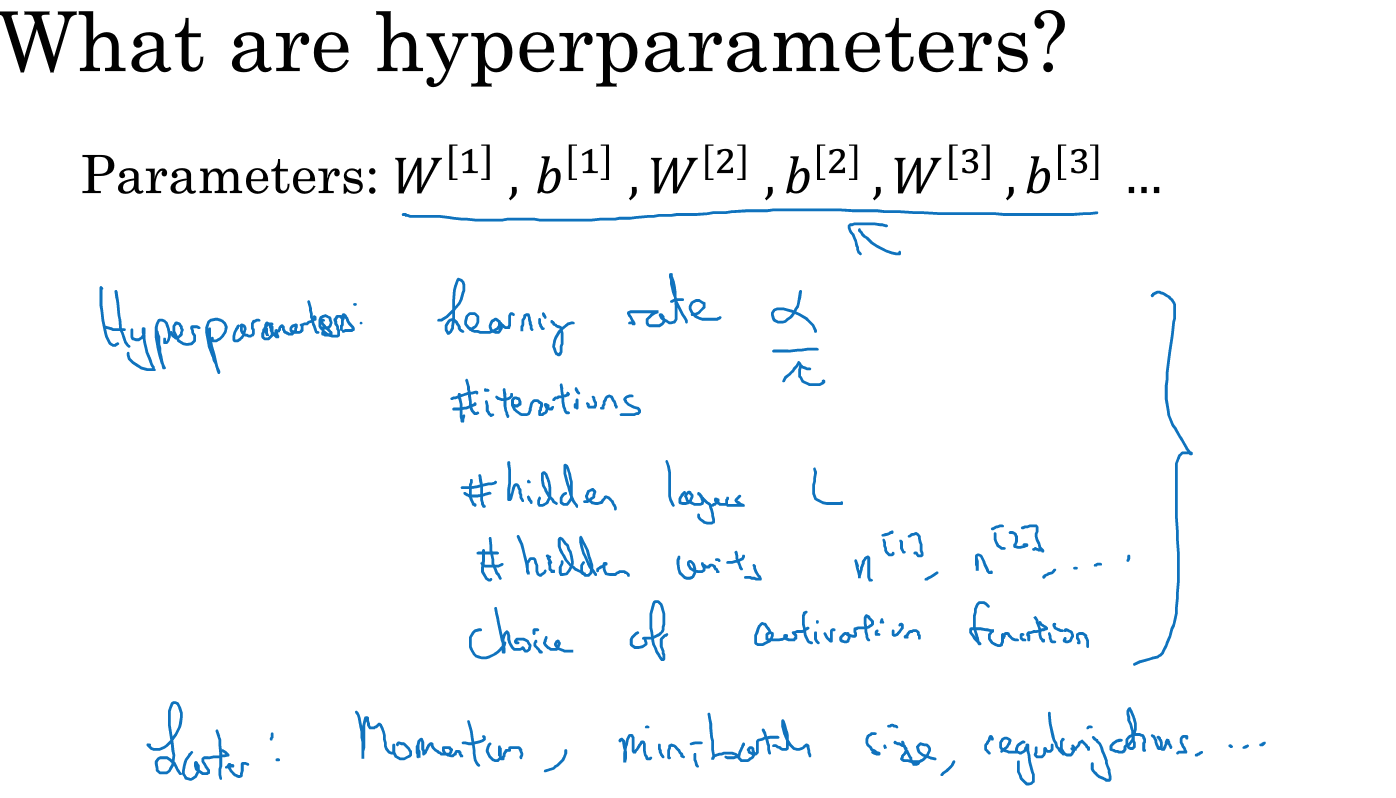 What are hyperparameters?
Parameters: W^[1] , b^[1] , W^[2] , b^[2] , W^[3] , b^[3] ...
Hyperparameters: Learning rate α
#iterations
#hidden layers L
# hidden units n^[1], n^[2], ....
Choice of activation function
Later: Momentum, mini-batch size, regularizations, ...